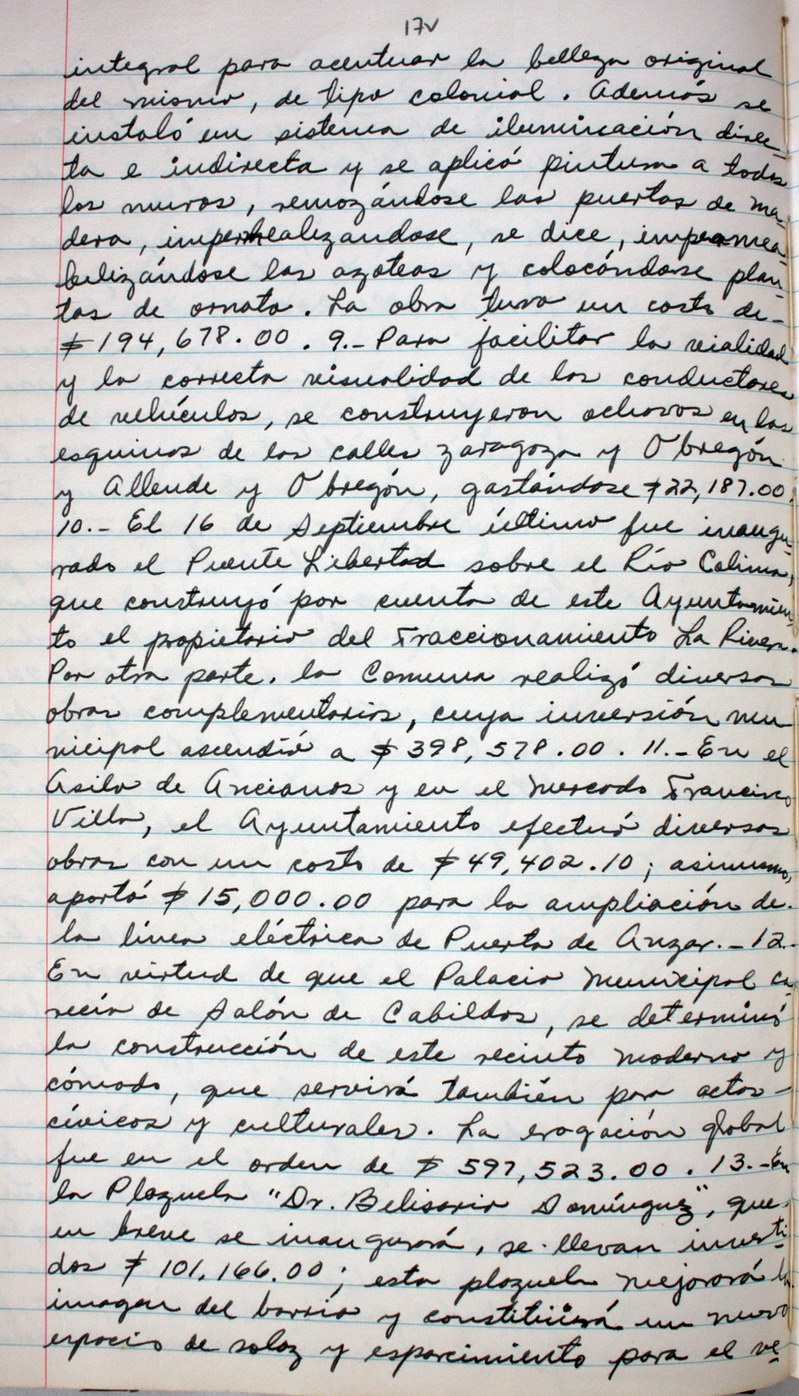 17v
integral para acentuar la belleza original
del mismo, de tipo colonial. Además se
instaló un sistema de iluminación direc-
ta e indirecta y se aplicó pintura a todos
los muros, remozándose las puertas de ma-
dera, imperhealizandose, se dice, impermea-
bilizándose las azoteas y colocándose plan-
tas de ornato. La obra tuvo un costo de-
$194,678.00. 9.- Para facilitar la vialidad
y la correcta visualidad de los conductores
de vehículos, se construyeron ochavos en las
esquinas de las calles Zaragoza y Obregón
y Allende y Obregón, gastándose $22,187.00.
10.- El 16 de Septiembre último fue inaugu-
rado el Puente Libertad sobre el Río Colima,
que construyó por cuenta de este Ayuntamien-
to el propietario del Fraccionamiento La Rivera.
Por otra parte, la Comuna realizó diversas
obras complementarias, cuya inversión mu-
nicipal ascendió a $398,578.00. 11.- En el
Asilo de Ancianos y en el Mercado Francisco
Villa, el Ayuntamiento efectuó diversas
obras con un costo de $49,402.10; asimismo,
aportó $15,000.00 para la ampliación de-
la línea eléctrica de Puerta de Anzar.- 12.-
En virtud de que el Palacio Municipal ca-
recía de Salón de Cabildos, se determinó
la construcción de este recinto moderno y
cómodo, que servirá también para actos-
cívicos y culturales. La erogación global
fue en el orden de $597,523.00. 13.- En
la Plazuela "Dr. Belisario Domínguez", que-
en breve se inaugurará, se llevan inverti-
dos $101,166.00; esta plazuela mejorará la
imagen del barrio y constituirá un nuevo
espacio de solaz y esparcimiento para el ve-